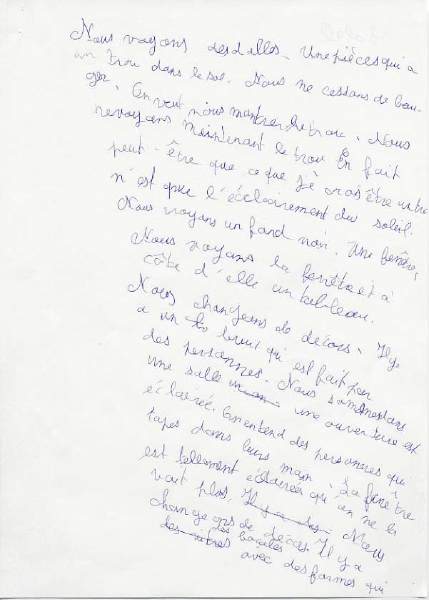 Nous voyons des dalles. Une pièces qui a
un trou dans le sol. Nous ne cessons de bou-
ger. On veut nous montrer le trou. Nous
revoyons maintenant le trou. En fait
peut-être que ce que je crois être un tre
n'est que l'éclairement du soleil.
Nous voyons un fond noir. Une fenêtre,
Nous voyons la fenêtre et à
côté d'elle un tableau.
Nous changeons de décors. Il y
a un bruit qui est fait par
des personnes. Nous sommes dans
une salle une ouverture est
éclairée. On entend des personnes qui
tapes dans leurs main. La fenêtre
est tellement éclairée qu'on ne la
voit plus. Nous
changeons de décors. Il y a
des
avec des formes qui